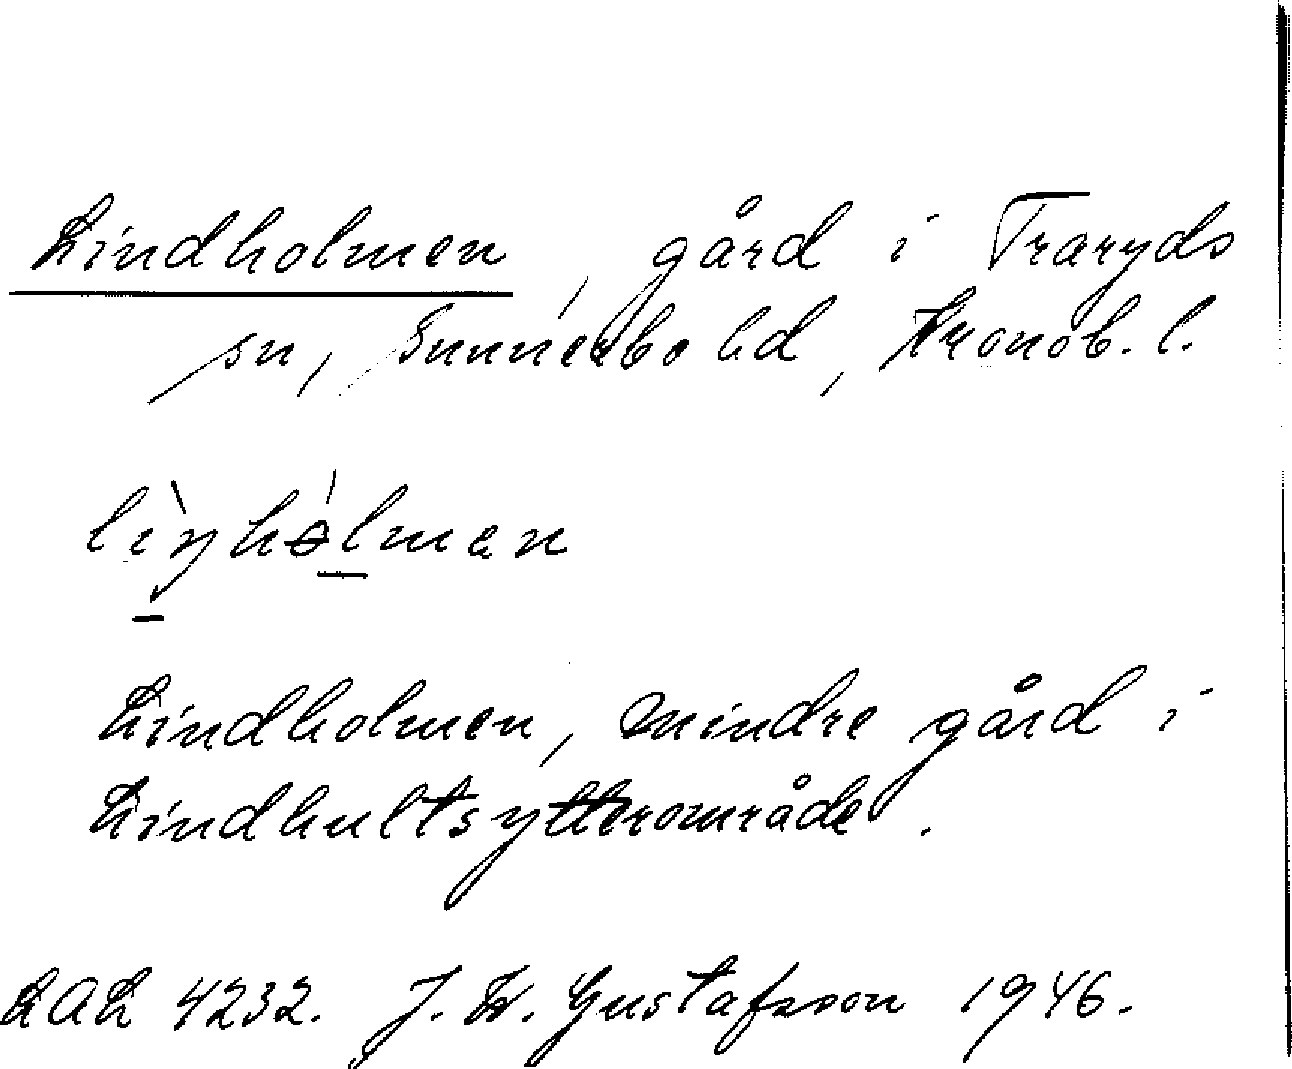 Lindholmen, gård i Traryds
sn, Sunnerbo hd, Kronob. l.
lìŋhólmen
Lindholmen, mindre gård i
Lindhultsytterområde.
LAL 4232. J. W. Gustafsson 1946.